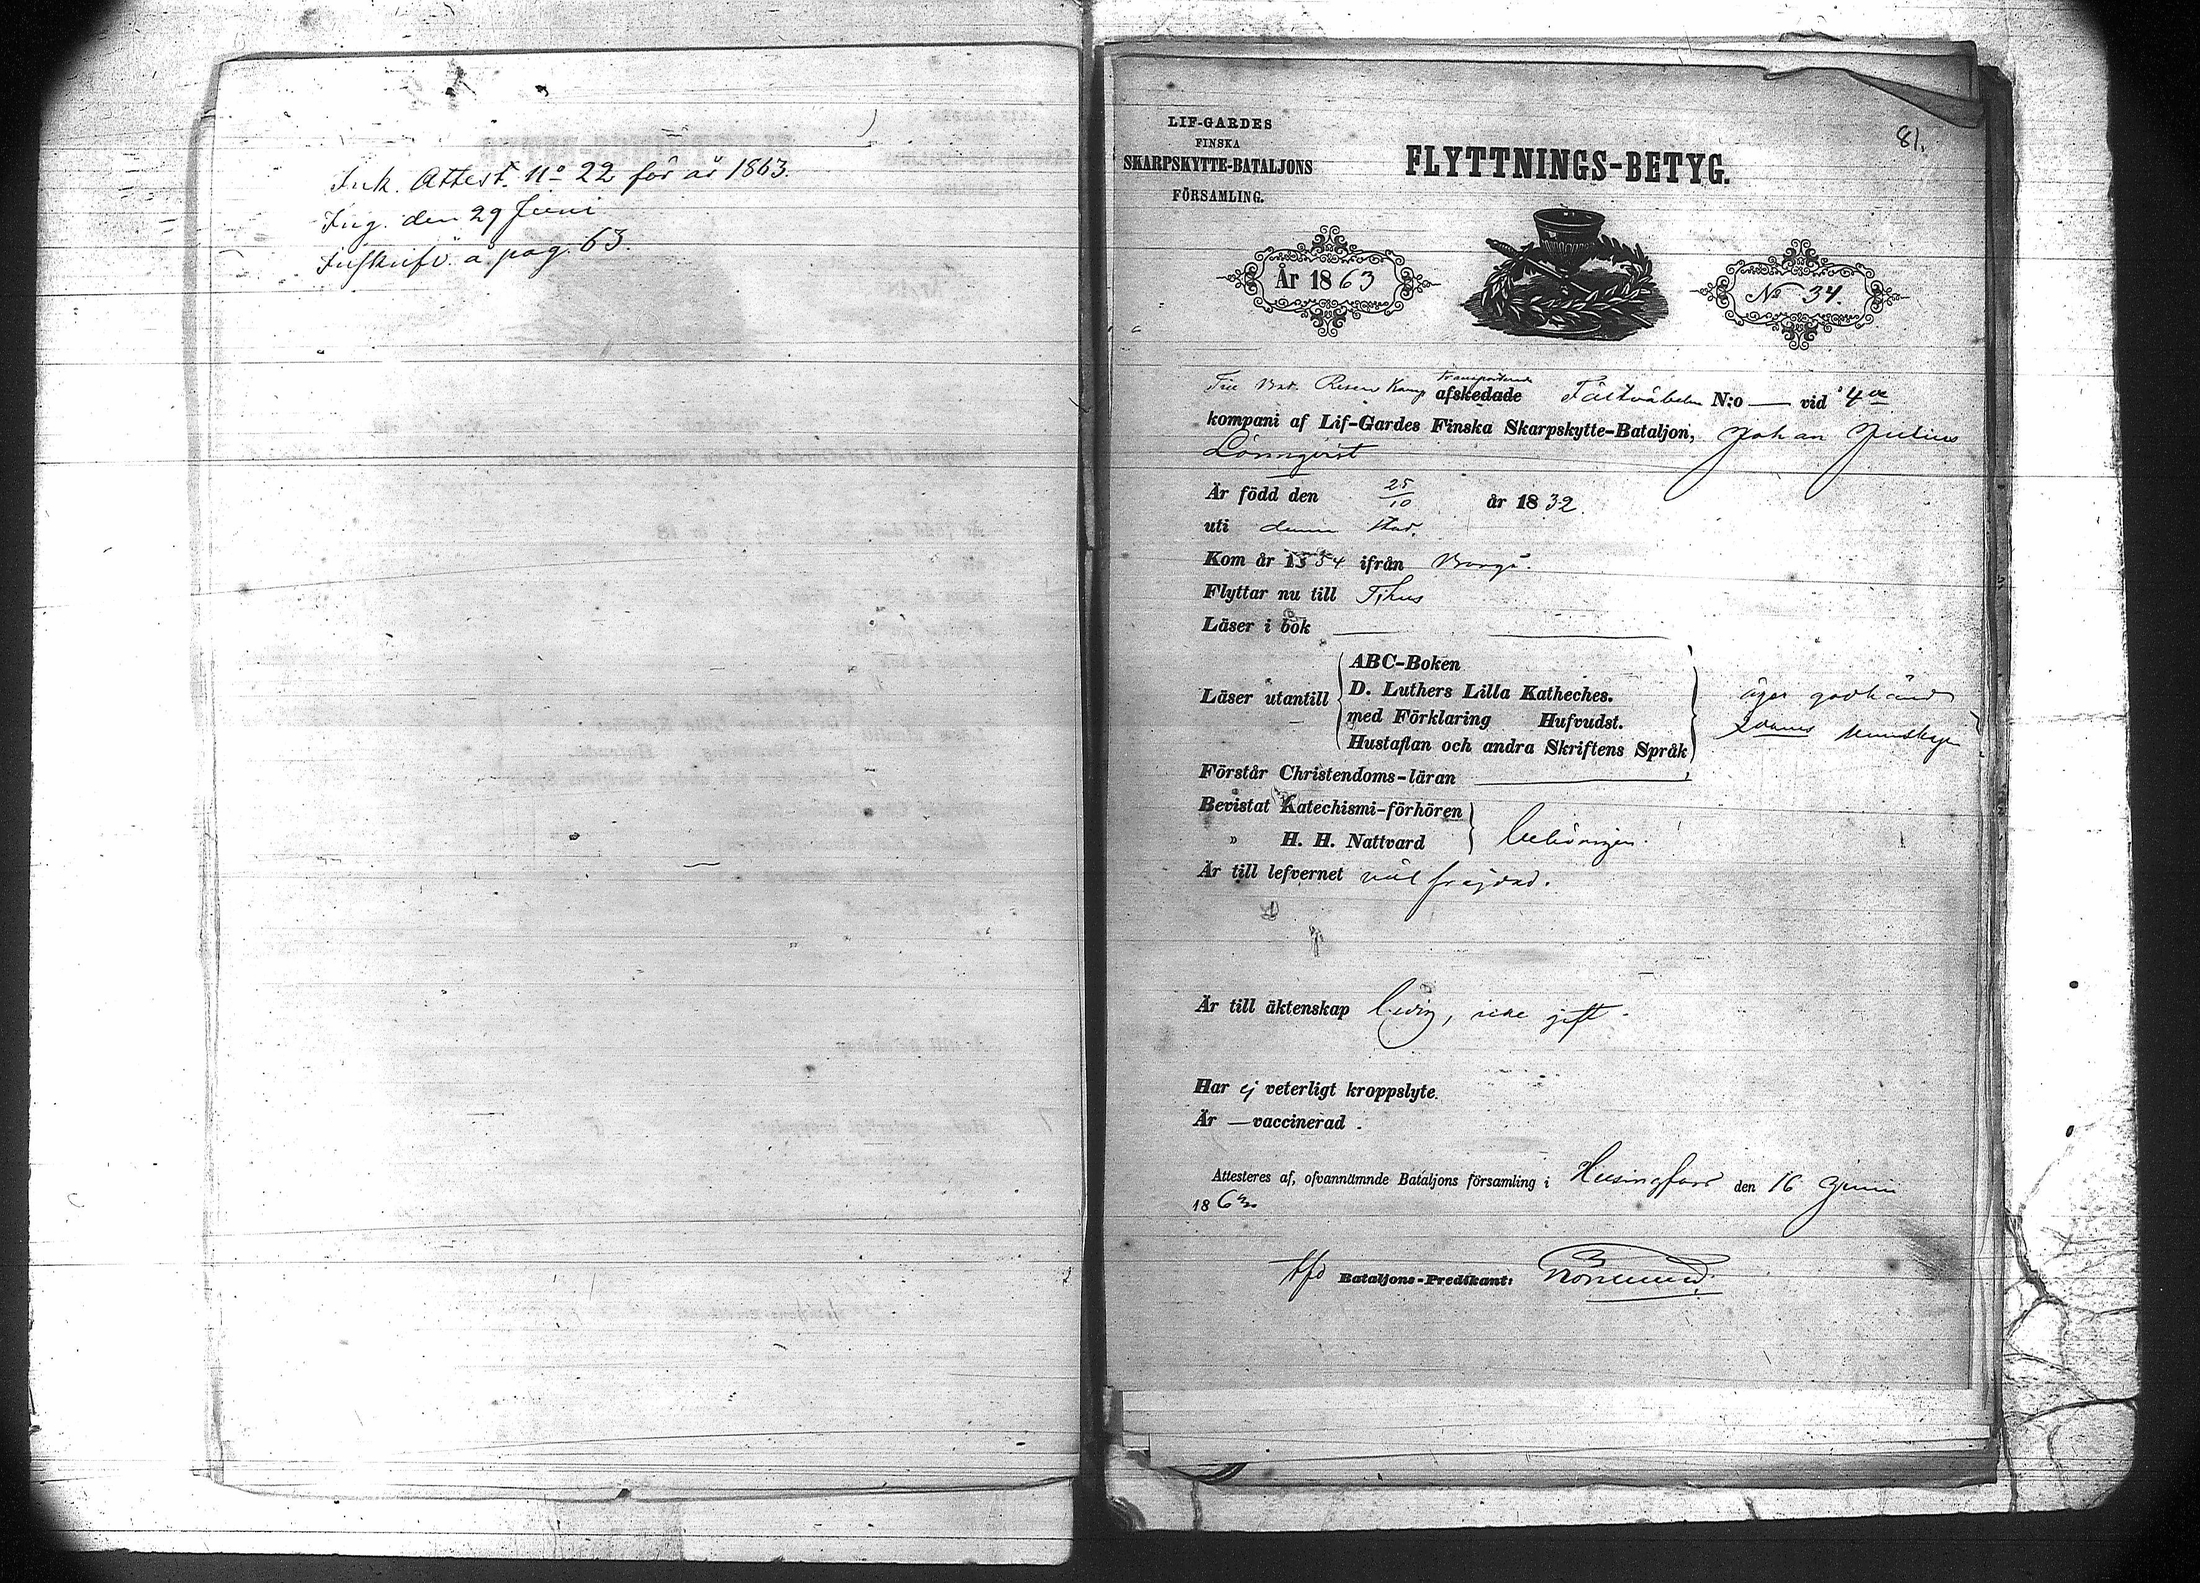 Ink. Attest. No 22 för år 1863.
Ing. den 29 Juni
Inskrifv. å pag. 63.
81.
LIF-GARDES
FINSKA
SKARPSKYTTE-BATALJONS
FÖRSAMLING.
FLYTTNINGS-BETYG.
År 1863
No 34.
transporterade
Till afskedade Fältväbeln N:o — vid 4de
kompani af Lif-Gardes Finska Skarpskytte-Bataljon, Johan Julius
Lönnqvist
Är född den 25/10 år 1832.
uti denna stad.
Kom år 1854 ifrån Borgå.
Flyttar nu till
Läser i bok
ABC-Boken
Läser utantill D. Luthers Lilla Katheches.
med Förklaring Hufvudst.
Hustaflan och andra Skriftens Språk
äger godkänd
kunskap
Förstår Christendoms-läran
Bevistat Katechismi-förhören
» H. H. Nattvard
behörigen.
Är till lefvernet väl frejdad.
Är till äktenskap ledig, icke gift.
Har ej veterligt kroppslyte.
Är — vaccinerad.
Attesteres af, ofvannämnde Bataljons församling i Helsingfors den 16 Juni
1863
Bataljons-Predikant: